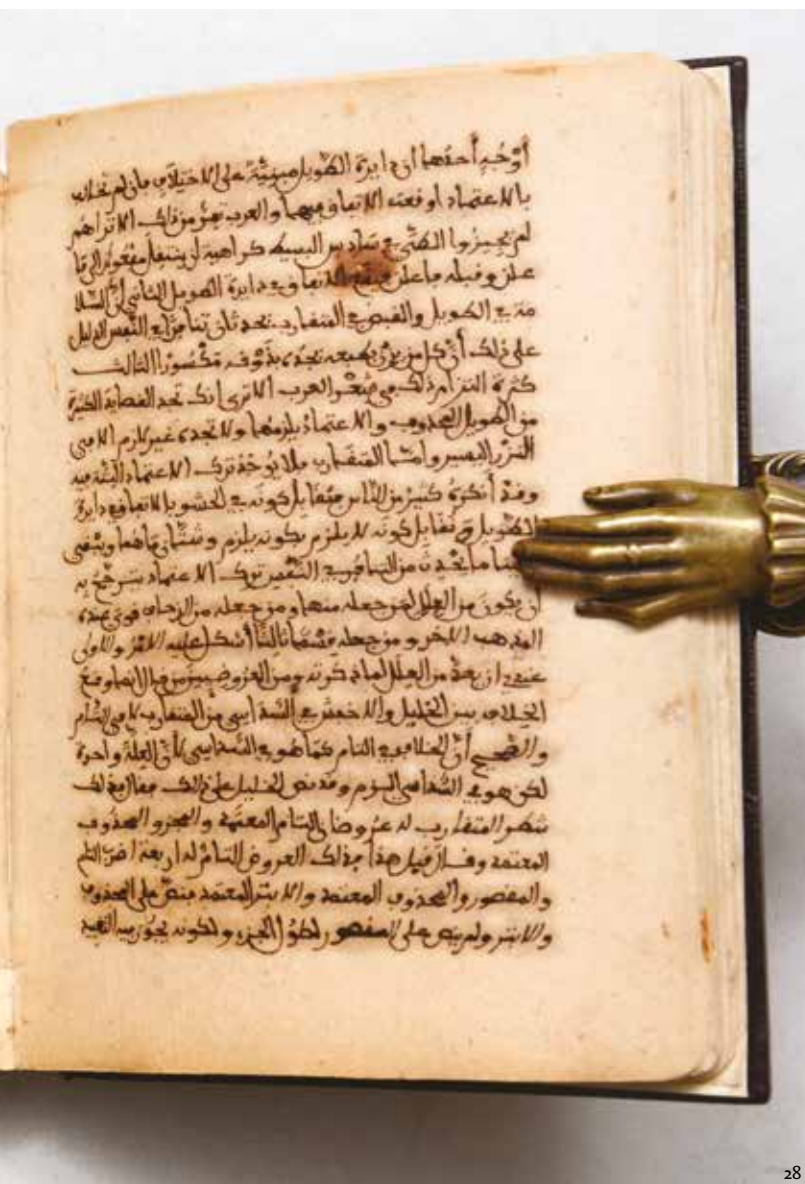 أوجه أحدها أن دايرة الطويل مبنية على الاختلاف فإن لم تخالف
بالاعتماد أوقعته الاتفاق فيها والعرب تفر من ذلك ألا تراهم
لم يجيزوا الطي في سادس البسيط كراهية أن ينتقل مفعولن إلى فا
علن وقبله فاعلن فيقع الاتفاق في دايرة الطويل الثاني أن السلا
مة في الطويل والقبض في المتقارب تحدثان تنافرا في النفس الدليل
على ذلك أن كل من يزن بطبعه تجده بذوقه مكسورا الثالث
كثرة التزام ذلك في شعر العرب ألا ترى أنك تجد القصايد الكثيرة
من الطويل المحذوف والاعتماد يلزمها ولا تجده غير لازم إلا في
النزر اليسير وأما المتقارب فلا يوجد ترك الاعتماد البتة فيه
وقد أنكره كثير من الناس فقابل كونه في الحشو بالاتفاق في دايرة
الطويل وتقابل كونه لا يلزم بكونه يلزم وشتان ما هما وينبغي
ما يحدث من التنافر في النفس ترك الاعتماد
أن يكون من العلل فمن جعله منها ومن جعله من الزحاف قوي عنده
المذهب الآخر ومن جعله قسما ثالثا أشكل عليه الأمر والأولى
عندي أن يعد من العلل لما ذكرته ومن العروضيين من قال إنما وقع
الخلاف بين الخليل والأخفش في السداسي من المتقارب لا في التام
والصحيح أن الخلاف في التام كما هو في السداسي لأن العلة واحدة
لكن هو في السداسي ألزم وقد نص الخليل على ذلك فقال في ذلك
شطر المتقارب له عروضان التام المعتمد والمجزو المحذوف
المعتمد وقال قبل هذا في ذلك العروض التام له أربعة أضرب التام
والمقصور والمحذوف المعتمد والأبتر المعتمد فنص على المحذوف
والأبتر ولم ينص على المقصور لطول الجزء ولكونه يجوز فيه التقييد
28